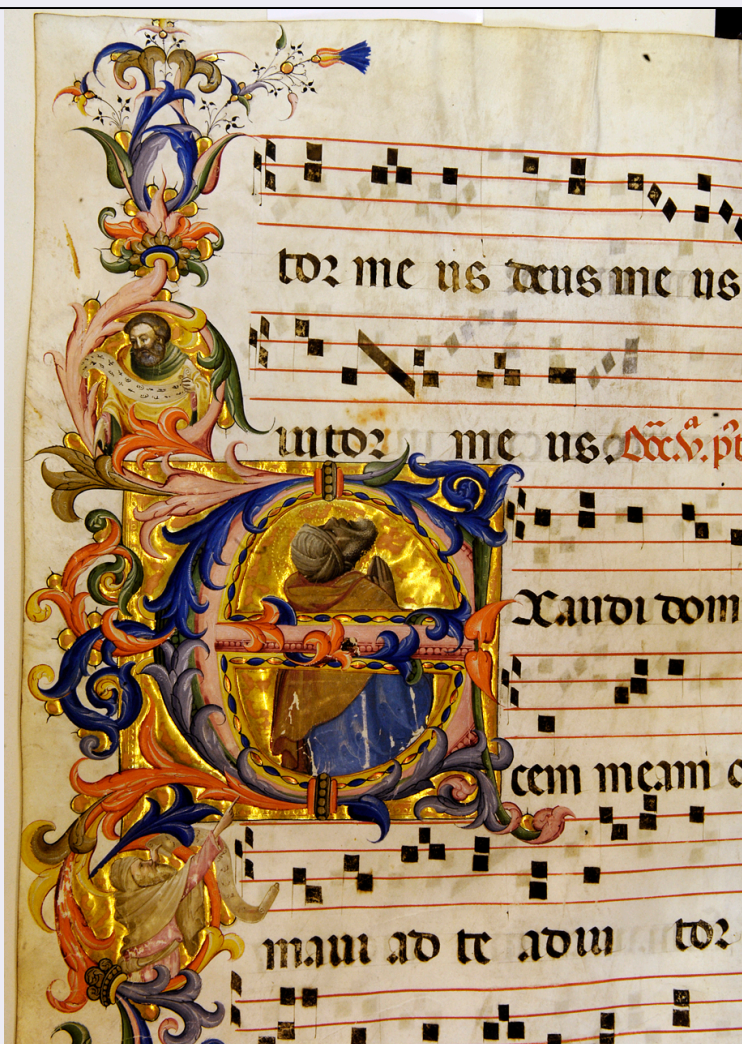 tor me us deus me us
iutor me us.
Exaudi dom
cem meam
maui ad te adiu tor